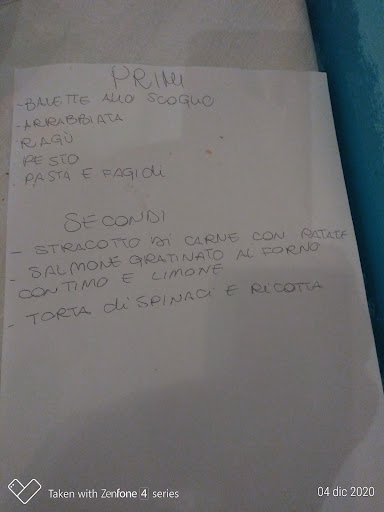 PRIMI
-BAVETTE ALLO SCOGLIO
-ARRABBIATA
RAGÙ
PESTO
PASTA E FAGIOLI
SECONDI
- STRACOTTO DI CARNE CON PATATE
- SALMONE GRATINATO AL FORNO
CON TIMO E LIMONE
- TORTA di SPINACI E RICOTTA
Taken with Zenfone 4 series
04 dic 2020